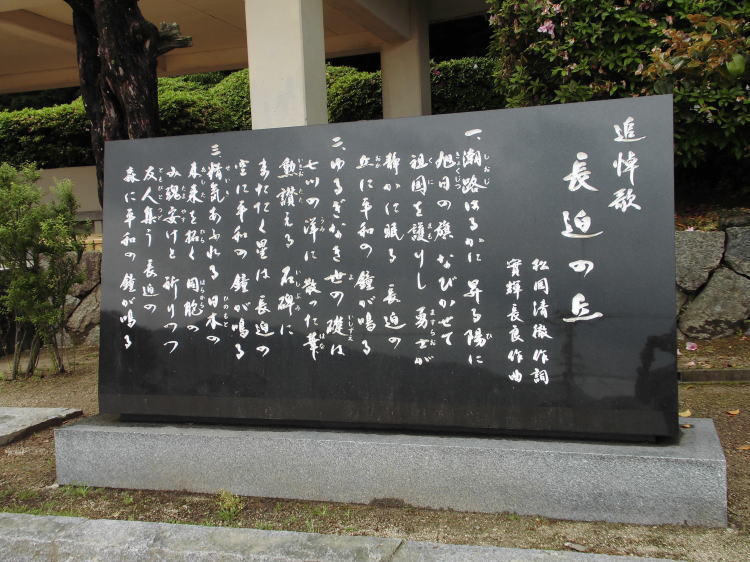 追悼歌
長迫の丘
松岡清徹作詞
實輝長良作曲
一、潮路はるかに 昇る陽に
旭日の旗 なびかせて
祖国を護りし 勇士が
静かに眠る 長迫の
丘に平和の 鐘が鳴る
二、ゆるぎなき世の 礎は
七つの洋に 散った華
勲讃える 石碑に
またたく星は 長迫の
空に平和の 鐘が鳴る
三、精気あふれる 日本の
未来を拓く 同胞の
み魂安けと 祈りつつ
友人集う 長迫の
森に平和の 鐘が鳴る